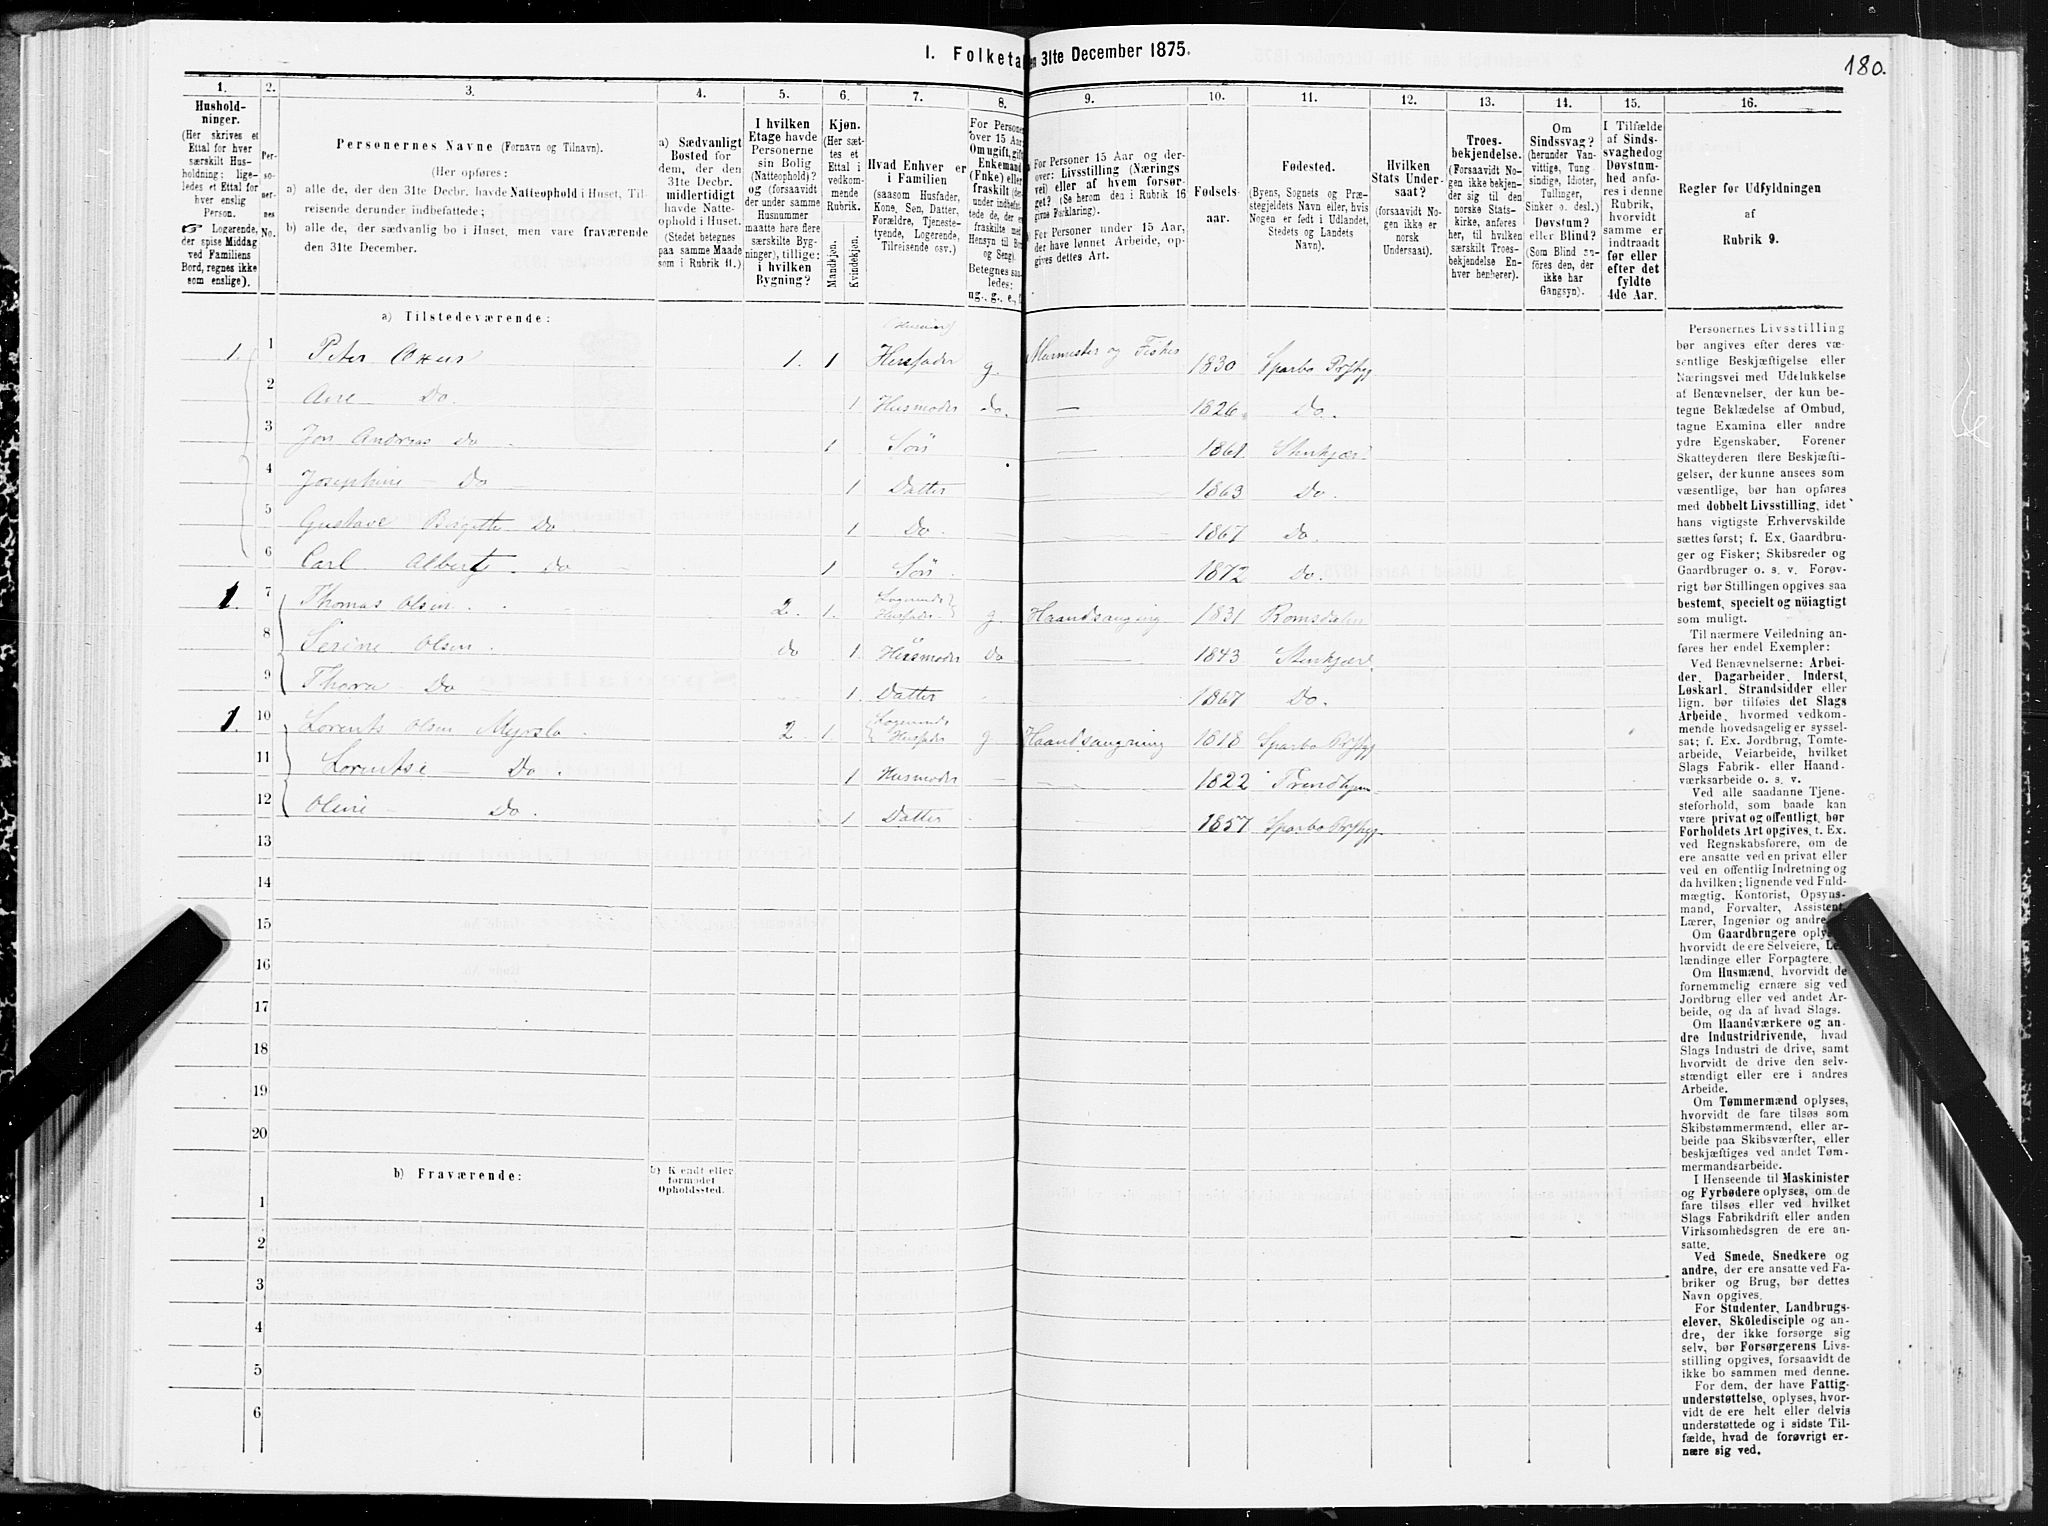 I. Folketa en 31te December 1875.
180.
1. 2. 3. 4. 5. 6. 7. 8. 9. 10. 11. 12. 13. 14. 15. 16.
Hushold-
ninger.
(Her skrives et
Ettal for hver
særskilt Hus-
holdning; lige-
ledes et Ettal for
hver enslig
Person.
☞ Logerende,
der spise Middag
ved Familiens
Bord, regnes ikke
som enslige).
Per-
so-
ner-
nes
No.
Personernes Navne (Fornavn og Tilnavn).
(Her opføres:
a) alle de, der den 31te Decbr. havde Natteophold i Huset, Til-
reisende derunder indbefattede;
b) alle de, der sædvanlig bo i Huset, men vare fraværende
den 31te December.
a) Sædvanligt
Bosted for
dem, der den
31te Decbr.
midlertidigt
havde Natte-
ophold i Huset.
(Stedet betegnes
paa samme Maade
som i Rubrik 11.)
I hvilken
Etage havde
Personerne
sin Bolig
(Natteophold)?
og (forsaavidt
der under samme
Husnummer
maatte høre flere
særskilte Byg-
ninger), tillige:
i hvilken
Bygning?
Kjøn.
(Her sæt-
tes et
Ettal i
vedkom-
mende
Rubrik.
Mandkjøn.
Kvindekjøn.
Hvad Enhver er
i Familien
(saasom Husfader,
Kone, Søn, Datter,
Forældre, Tjeneste-
tyende, Logerende,
Tilreisende osv.)
For Persone
over 15 Aar
Om ugift, gift
Enkemand
(Enke) eller
fraskilt (der
under indbefat-
tede de, der er
fraskilte med
Hensyn til Bor
og Seng).
Betegnes saa-
ledes:
ug., g., e., f.
For Personer 15 Aar og der-
over: Livsstilling (Nærings
vei) eller af hvem forsør-
get? (Se herom den i Rubrik 16
givne Forklaring).
For Personer under 15 Aar,
der have lønnet Arbeide, op-
gives dettes Art.
Fødsels-
aar.
Fødested.
(Byens, Sognets og Præ-
stegjeldets Navn eller, hvis
Nogen er født i Udlandet,
Stedets og Landets
Navn).
Hvilken
Stats Under-
saat?
(forsaavidt No-
gen ikke er
norsk
Undersaat).
Troes-
bekjendelse.
(Forsaavidt No-
gen ikke bekjen-
der sig til den
norske Stats-
kirke, anføres
her, til hvilken
særskilt Troes-
bekjendelse En-
hver henhører).
Om
Sindssvag?
(herunder Van-
vittige, Tung-
sindige, Idioter,
Tullinger,
Sinker o. desl.)
Døvstum?
eller Blind?
(Som Blind an-
føres den, der
ikke har
Gangsyn).
I Tilfælde
af Sinds-
svaghed og
Døvstum-
hed anfø-
res i denne
Rubrik,
hvorvidt
samme er
indtraadt
før eller
efter det
fyldte
4de Aar.
Regler for Udfyldningen
af
Rubrik 9.
a) Tilstedeværende:
1. 1 Peter 1. 1 Husfader g. Murmester og Fisker 1830 Sparbo Prstgj
2 Ane Do. 1 Husmoder Do. — 1826. Do.
3 Jon Andreas Do 1 Søn — 1861 Stenkjær
4 Josephine — Do 1 Datter — 1863 Do.
5 Gustave Birgitte Do 1 Do. — 1867 Do.
6 Carl Albert Do 1 Søn. 1872 Do.
1. 7 Thomas Olsen. 2. 1. Logerende Husfader. g. Haandsangning 1831 Romsdalen
8 Serine Olsen. do 1 Husmoder Do 1843 Stenkjær
9 Thora Do 1. Datter 1867 Do.
1. 10 Lorents Olsen 2. 1 Logerende Husfader g Haandsangning 1818 Sparbo Prstgj
11 Lorentse — Do. 1 Husmoder — 1822 Trondhjem
12 Oline — Do. 1 Datter 1857 Sparbo Prstgj.
13
14
15
16
17
18
19
20
b) Fraværende:
b) Kjendt eller
formodet
Opholdssted.
1
2
3
4
5
6
Personernes Livsstilling
bør angives efter deres væ-
sentlige Beskjæftigelse eller
Næringsvei med Udelukkelse
af Benævnelser, der kun be-
tegne Beklædelse af Ombud,
tagne Examina eller andre
ydre Egenskaber. Forener
Skatteyderen flere Beskjæfti-
gelser, der kunne ansees som
væsentlige, bør han opføres
med dobbelt Livsstilling, idet
hans vigtigste Erhvervskilde
sættes først; f. Ex. Gaardbru-
ger og Fisker; Skibsreder og
Gaardbruger o. s. v. Forøv-
rigt bør Stillingen opgives saa
bestemt, specielt og nöiagtigt
som muligt.
Til nærmere Veiledning an-
føres her endel Exempler:
Ved Benævnelserne: Arbei-
der, Dagarbeider, Inderst,
Løskarl, Strandsidder eller
lign. bør tilføies det Slags
Arbeide, hvormed vedkom-
mende hovedsagelig er syssel-
sat; f. Ex. Jordbrug, Tomte-
arbeide, Veiarbeide, hvilket
Slags Fabrik- eller Haand-
værksarbeide o. s. v.
Ved alle saadanne Tjene-
steforhold, som baade kan
være privat og offentligt, bør
Forholdets Art opgives, t. Ex.
ved Regnskabsførere, om de
ere ansatte ved en privat eller
ved en offentlig Indretning og
da hvilken; lignende ved Fuld-
mægtig, Kontorist, Opsyns-
mand, Forvalter, Assistent,
Lærer, Ingeniør og andre.
Om Gaardbrugere oplyses,
hvorvidt de ere Selveiere, Lei-
lændinge eller Forpagtere.
Om Husmænd, hvorvidt de
fornemmelig ernære sig ved
Jordbrug eller ved andet Ar-
beide, og da af hvad Slags.
Om Haandværkere og an-
dre Industridrivende, hvad
Slags Industri de drive, samt
hvorvidt de drive den selv-
stændigt eller ere i andres
Arbeide.
Om Tømmermænd oplyses,
hvorvidt de fare tilsøs som
Skibstømmermænd, eller ar-
beide paa Skibsværfter, eller
beskjæftiges ved andet Tøm-
mermandsarbeide.
I Henseende til Maskinister
og Fyrbødere oplyses, om de
fare tilsøs eller ved hvilket
Slags Fabrikdrift eller anden
Virksomhedsgren de ere an-
satte.
Ved Smede, Snedkere og
andre, der ere ansatte ved Fa-
briker og Brug, bør dettes
Navn opgives.
For Studenter, Landbrugs-
elever, Skoledisciple og an-
dre, der ikke forsørge sig
selv, bør Forsørgerens Livs-
stilling opgives, forsaavidt de
ikke bo sammen med denne.
For dem, der have Fattig-
understøttelse, oplyses, hvor-
vidt de ere helt eller delvis
understøttede og i sidste Til-
fælde, hvad de forøvrigt er-
nære sig ved.